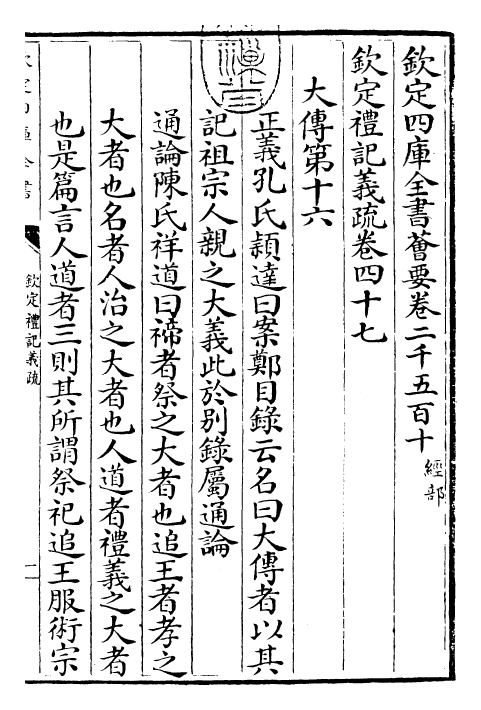 欽定四庫全書薈要卷二千五百十 經部
欽定禮記義疏卷四十七
大傳第十六
正義孔氏穎達曰案鄭目錄云名曰大傳者以其
記祖宗人親之大義此於别錄屬通論
通論陳氏祥道曰禘者祭之大者也追王者孝之
大者也名者人治之大者也人道者禮義之大者
也是篇言人道者三則其所謂祭祀追王服術宗
欽定禮記義疏